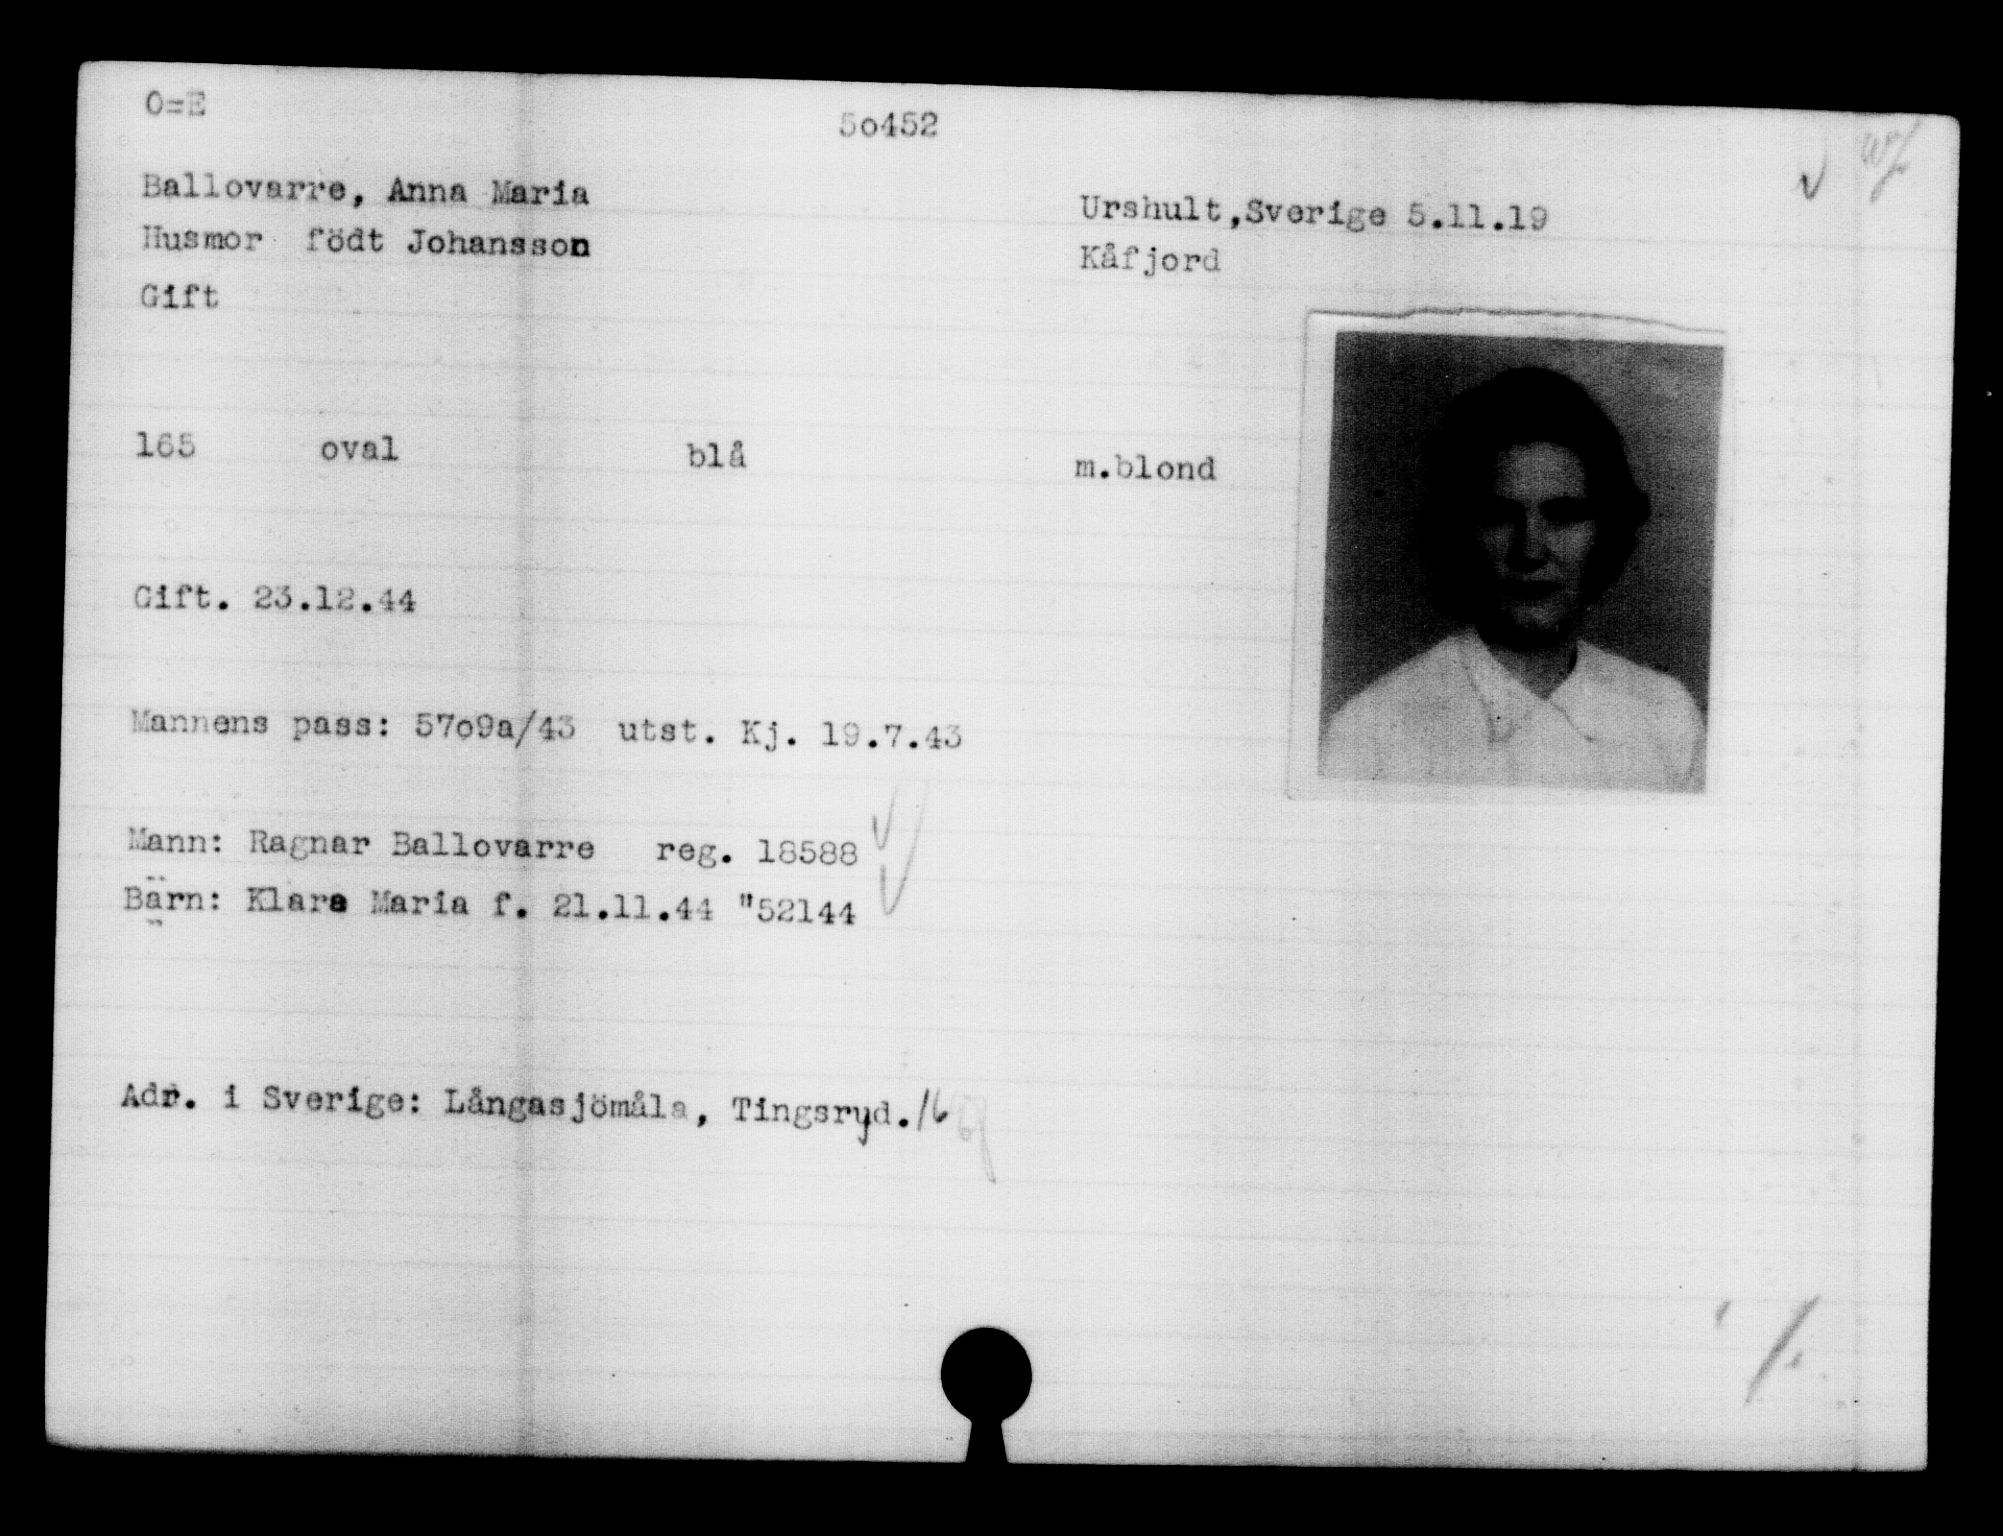 O=E
5o452
Ballovarre, Anna Maria
Urshult,Sverige 5.11.19
Husmor födt Johansson
Kåfjord
Gift
165 oval blå m.blond
Gift. 23.12.44
Mannens pass: 57o9a/43 utst. Kj. 19.7.43
Mann: Ragnar Ballovarre reg. 18588
Bärn: Klara Maria f. 21.11.44 "52144
Adr. i Sverige: Långasjömåla, Tingsryd.